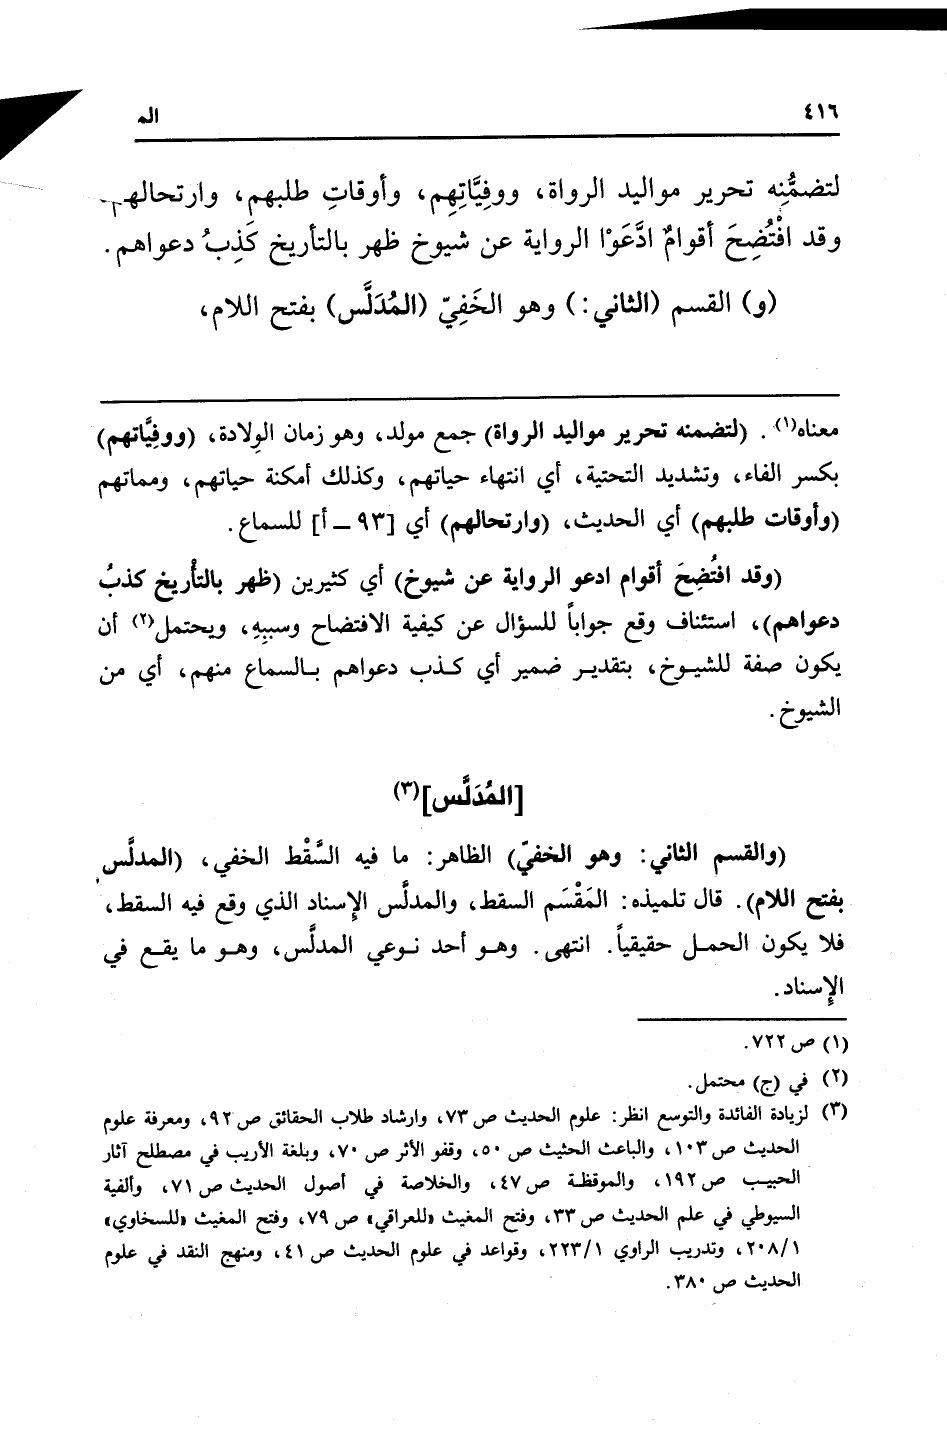 ٤١٦
الم
لتضمُّنِه تحرير مواليد الرواة، ووفِيَّاتِهِم، وأوقاتِ طلبهم، وارتحالهم.
وقد افْتُضِحَ أقوامٌ ادَّعَوْا الرواية عن شيوخ ظهر بالتأريخ كَذِبُ دعواهم.
(و) القسم (الثاني:) وهو الخَفِيّ (المُدَلَّس) بفتح اللام،
معناه(١). (لتضمنه تحرير مواليد الرواة) جمع مولد، وهو زمان الوِلادة، (ووفِيَّاتهم)
بكسر الفاء، وتشديد التحتية، أي انتهاء حياتهم، وكذلك أمكنة حياتهم، ومماتهم
(وأوقات طلبهم) أي الحديث، (وارتحالهم) أي [٩٣ ــ أ] للسماع.
(وقد افتُضِحَ أقوام ادعو الرواية عن شيوخ) أي كثيرين (ظهر بالتأْريخ كذبُ
دعواهم)، استئناف وقع جواباً للسؤال عن كيفية الافتضاح وسببِهِ، ويحتمل(٢) أن
يكون صفة للشيوخ، بتقدير ضمير أي كذب دعواهم بالسماع منهم، أي من
الشيوخ.
[المُدَلَّس](٣)
(والقسم الثاني: وهو الخفيّ) الظاهر: ما فيه السَّقْط الخفي، (المدلَّس
بفتح اللام). قال تلميذه: المَقْسَم السقط، والمدلَّس الإسناد الذي وقع فيه السقط،
فلا يكون الحمل حقيقياً. انتهى. وهو أحد نوعي المدلَّس، وهو ما يقع في
الإسناد.
(١) ص ٧٢٢.
(٢) في (ج) محتمل.
(٣) لزيادة الفائدة والتوسع انظر: علوم الحديث ص ٧٣، وارشاد طلاب الحقائق ص ٩٢، ومعرفة علوم
الحديث ص ١٠٣، والباعث الحثيث ص ٥٠، وقفو الأثر ص ٧٠، وبلغة الأريب في مصطلح آثار
الحبيب ص ١٩٢، والموقظة ص ٤٧، والخلاصة في أصول الحديث ص ٧١، وألفية
السيوطي في علم الحديث ص ٣٣، وفتح المغيث «للعراقي» ص ٧٩، وفتح المغيث «للسخاوي»
٢٠٨/١، وتدريب الراوي ٢٢٣/١، وقواعد في علوم الحديث ص ٤١، ومنهج النقد في علوم
الحديث ص ٣٨٠.